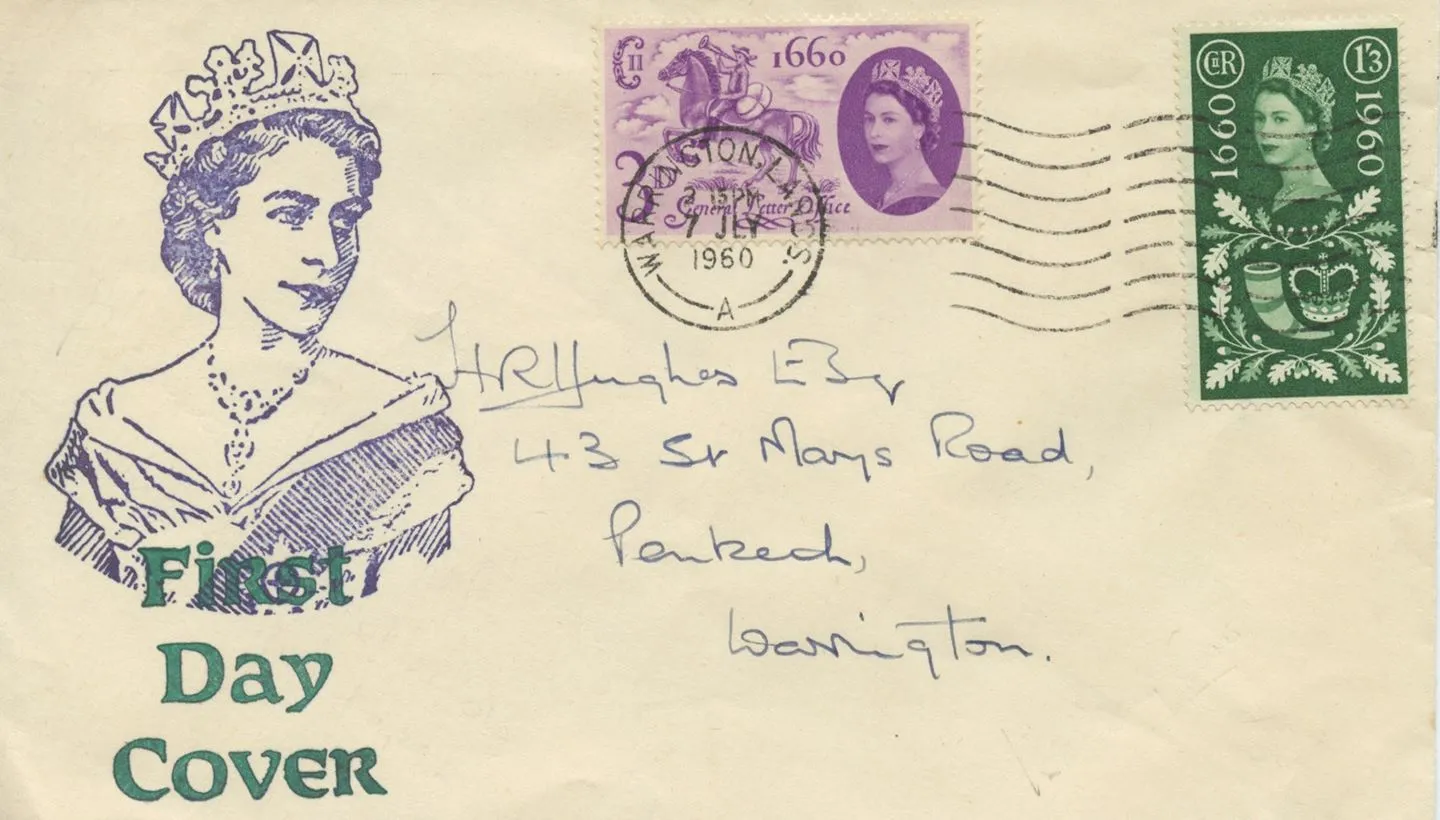 CII
1660
3D
General Letter Office
WARRINGTON, LANCS.
2 15PM
7 JLY
1960
A
CIIR
1'3
1660
1960
HR Hughes Esq
43 St Marys Road,
Penketh,
Warrington.
First
Day
Cover